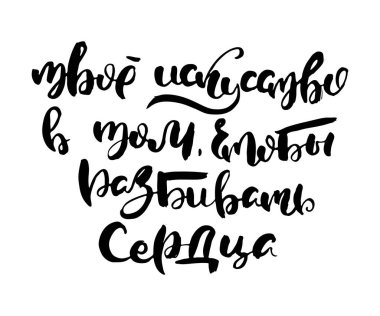 твоё искусство
в том, чтобы
разбивать
сердца